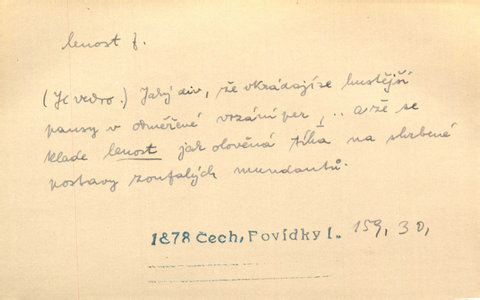 lenost f.
(Je vedro.) Jaký div, že vkrádají se hustější
pausy v odměřené vrzání per ⊥ .. a že se
klade lenost jak olověná tíha na shrbené
postavy zoufalých mundantů.
1878 Čech, Povídky I. 159, 30,